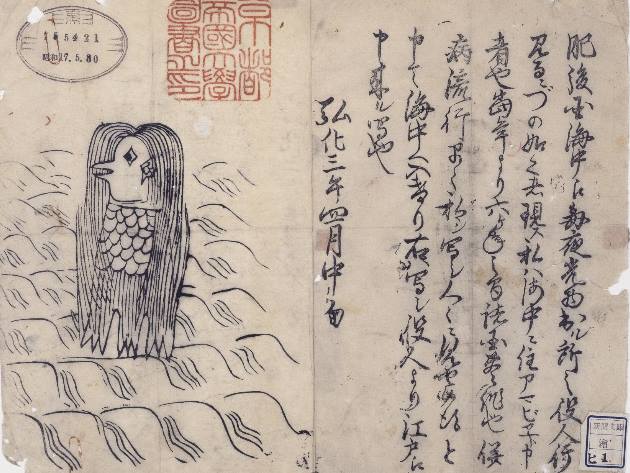 肥後国海中え毎夜光物出ル所之役人行
見るニづの如く者現ス私ハ海中ニ住アマビヱト申
者也当年より六ヶ年之間諸国豊作也併
病流行早々私シ写シ人々ニ見せ候得と
申て海中へ入けり右写シ役人より江戸え
申来ル写也
弘化三年四月中旬
京都
帝國大學
圖書之印
昭和17.5.30
新聞文庫
絵
ヒ1